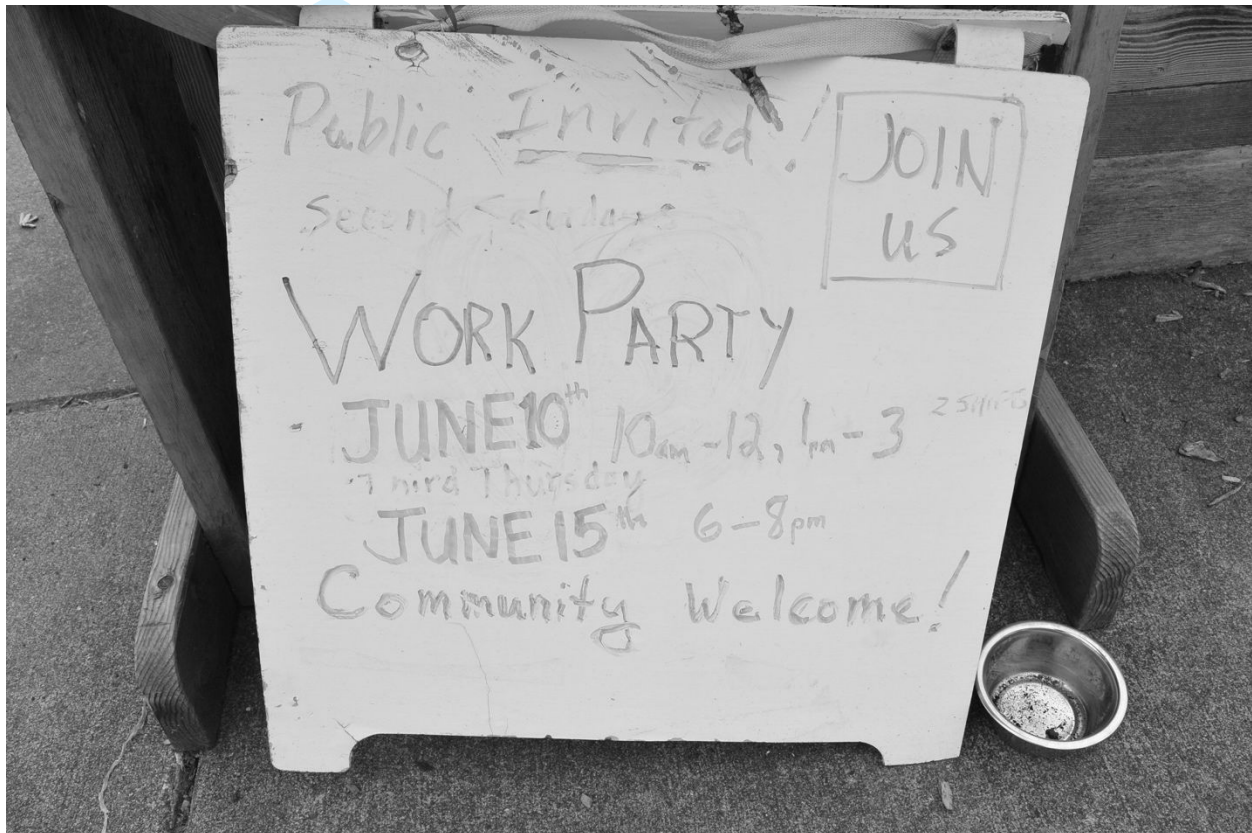 Public Invited!
JOIN
US
Second Saturdays
WORK PARTY
JUNE 10th 10am-12, 1pm-3
Third Thursday
JUNE 15th 6-8pm
Community Welcome!